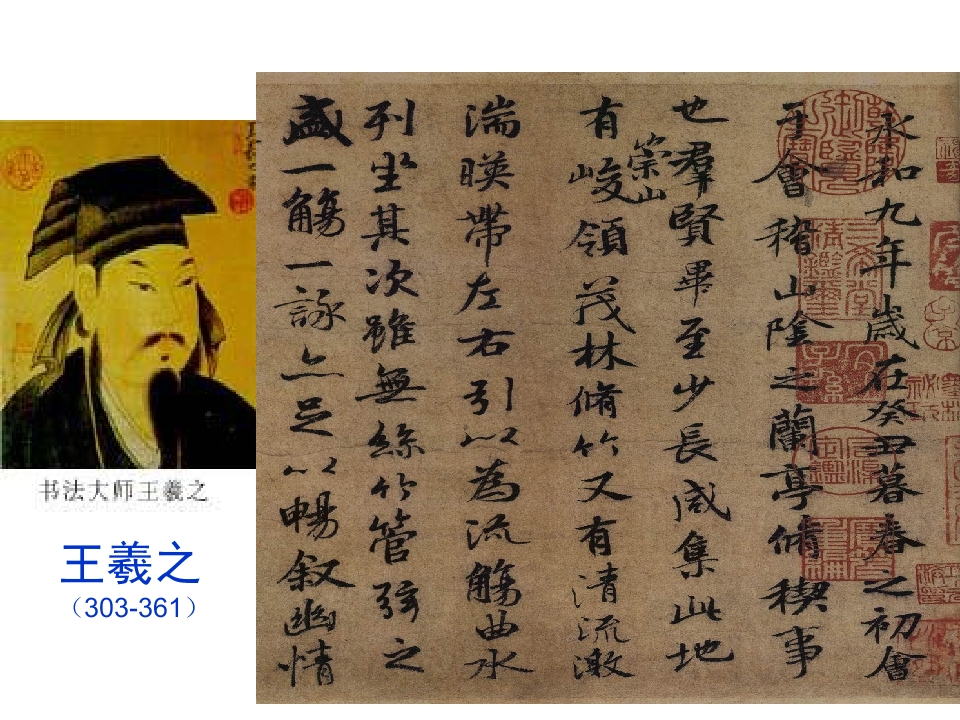 永和九年歲在癸丑暮春之初會
于會稽山陰之蘭亭脩稧事
也羣賢畢至少長咸集此地
有崇山峻領茂林脩竹又有清流激
湍暎帶左右引以為流觴曲水
列坐其次雖無絲竹管弦之
盛一觴一詠亦足以暢叙幽情
书法大师王羲之
王羲之
（303-361）